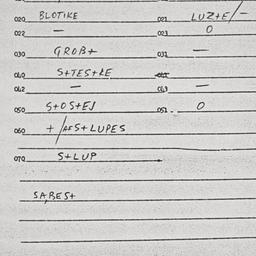 020 BLOTIKE 021 LUZ+E/-
022 - 023 0
030 GROB+ 031 -
040 S+TES+KE
042 - 043 -
050 S+OS+EJ 051. 0
060 + /AFS+LUPES
070 S+LUP
SABES+